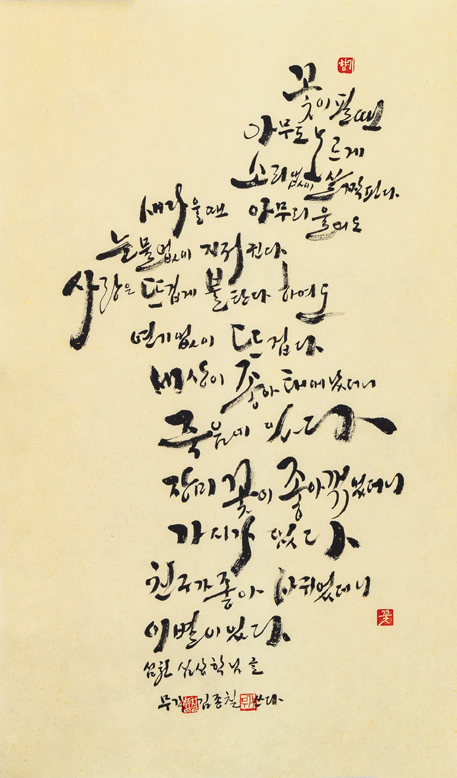 꽃이 필 때
아무도 모르게
소리 없이 살짝 핀다.
새가 울 때 아무리 울어도
눈물 없이 지저귄다.
사랑은 뜨겁게 불탄다 하여도
연기 없이 뜨겁다
세상이 좋아 태어났더니
죽음이 있다
장미꽃이 좋아 꺾었더니
가시가 있다
친구가 좋아 사귀었더니
꽃
이별이 있다
심상학님 글
김종칠 쓰다